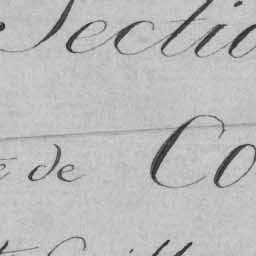 Sectio
de Co